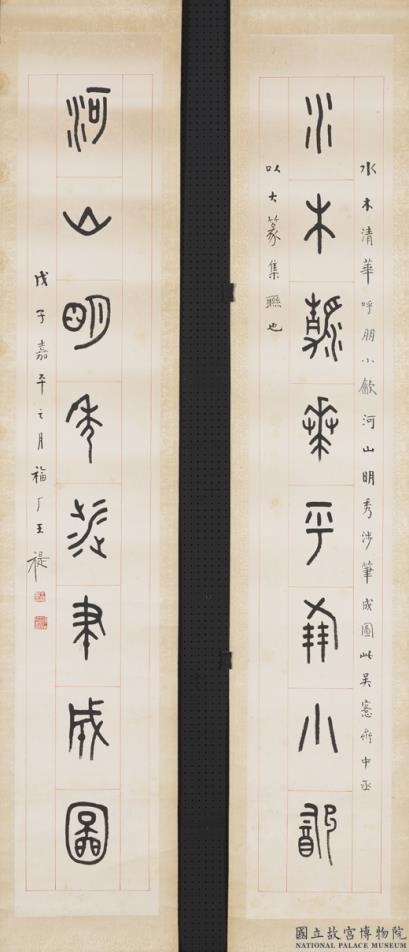 水木清華呼朋小㱃河山明秀涉筆成圖此吳愙齋中丞
水木清華乎朋小㱃
以大篆集聯也
河山明秀涉聿成圖
戊子嘉平之月福厂王禔
國立故宮博物院
NATIONAL PALACE MUSEUM